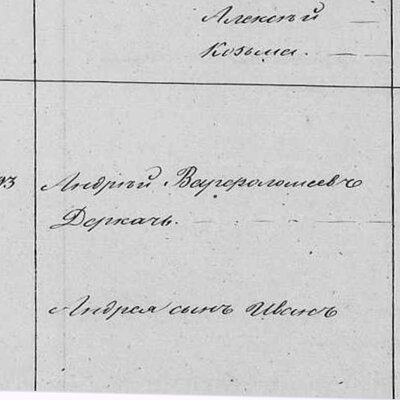 Алексѣй
Козьма.
93
Андрѣй Варфоломеевъ
Деркачь.
Андрея сынъ Иванъ